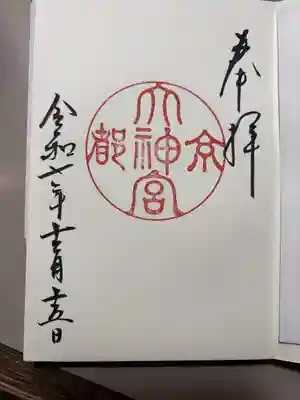 奉拝
京都
大神宮
令和七年十二月十五日